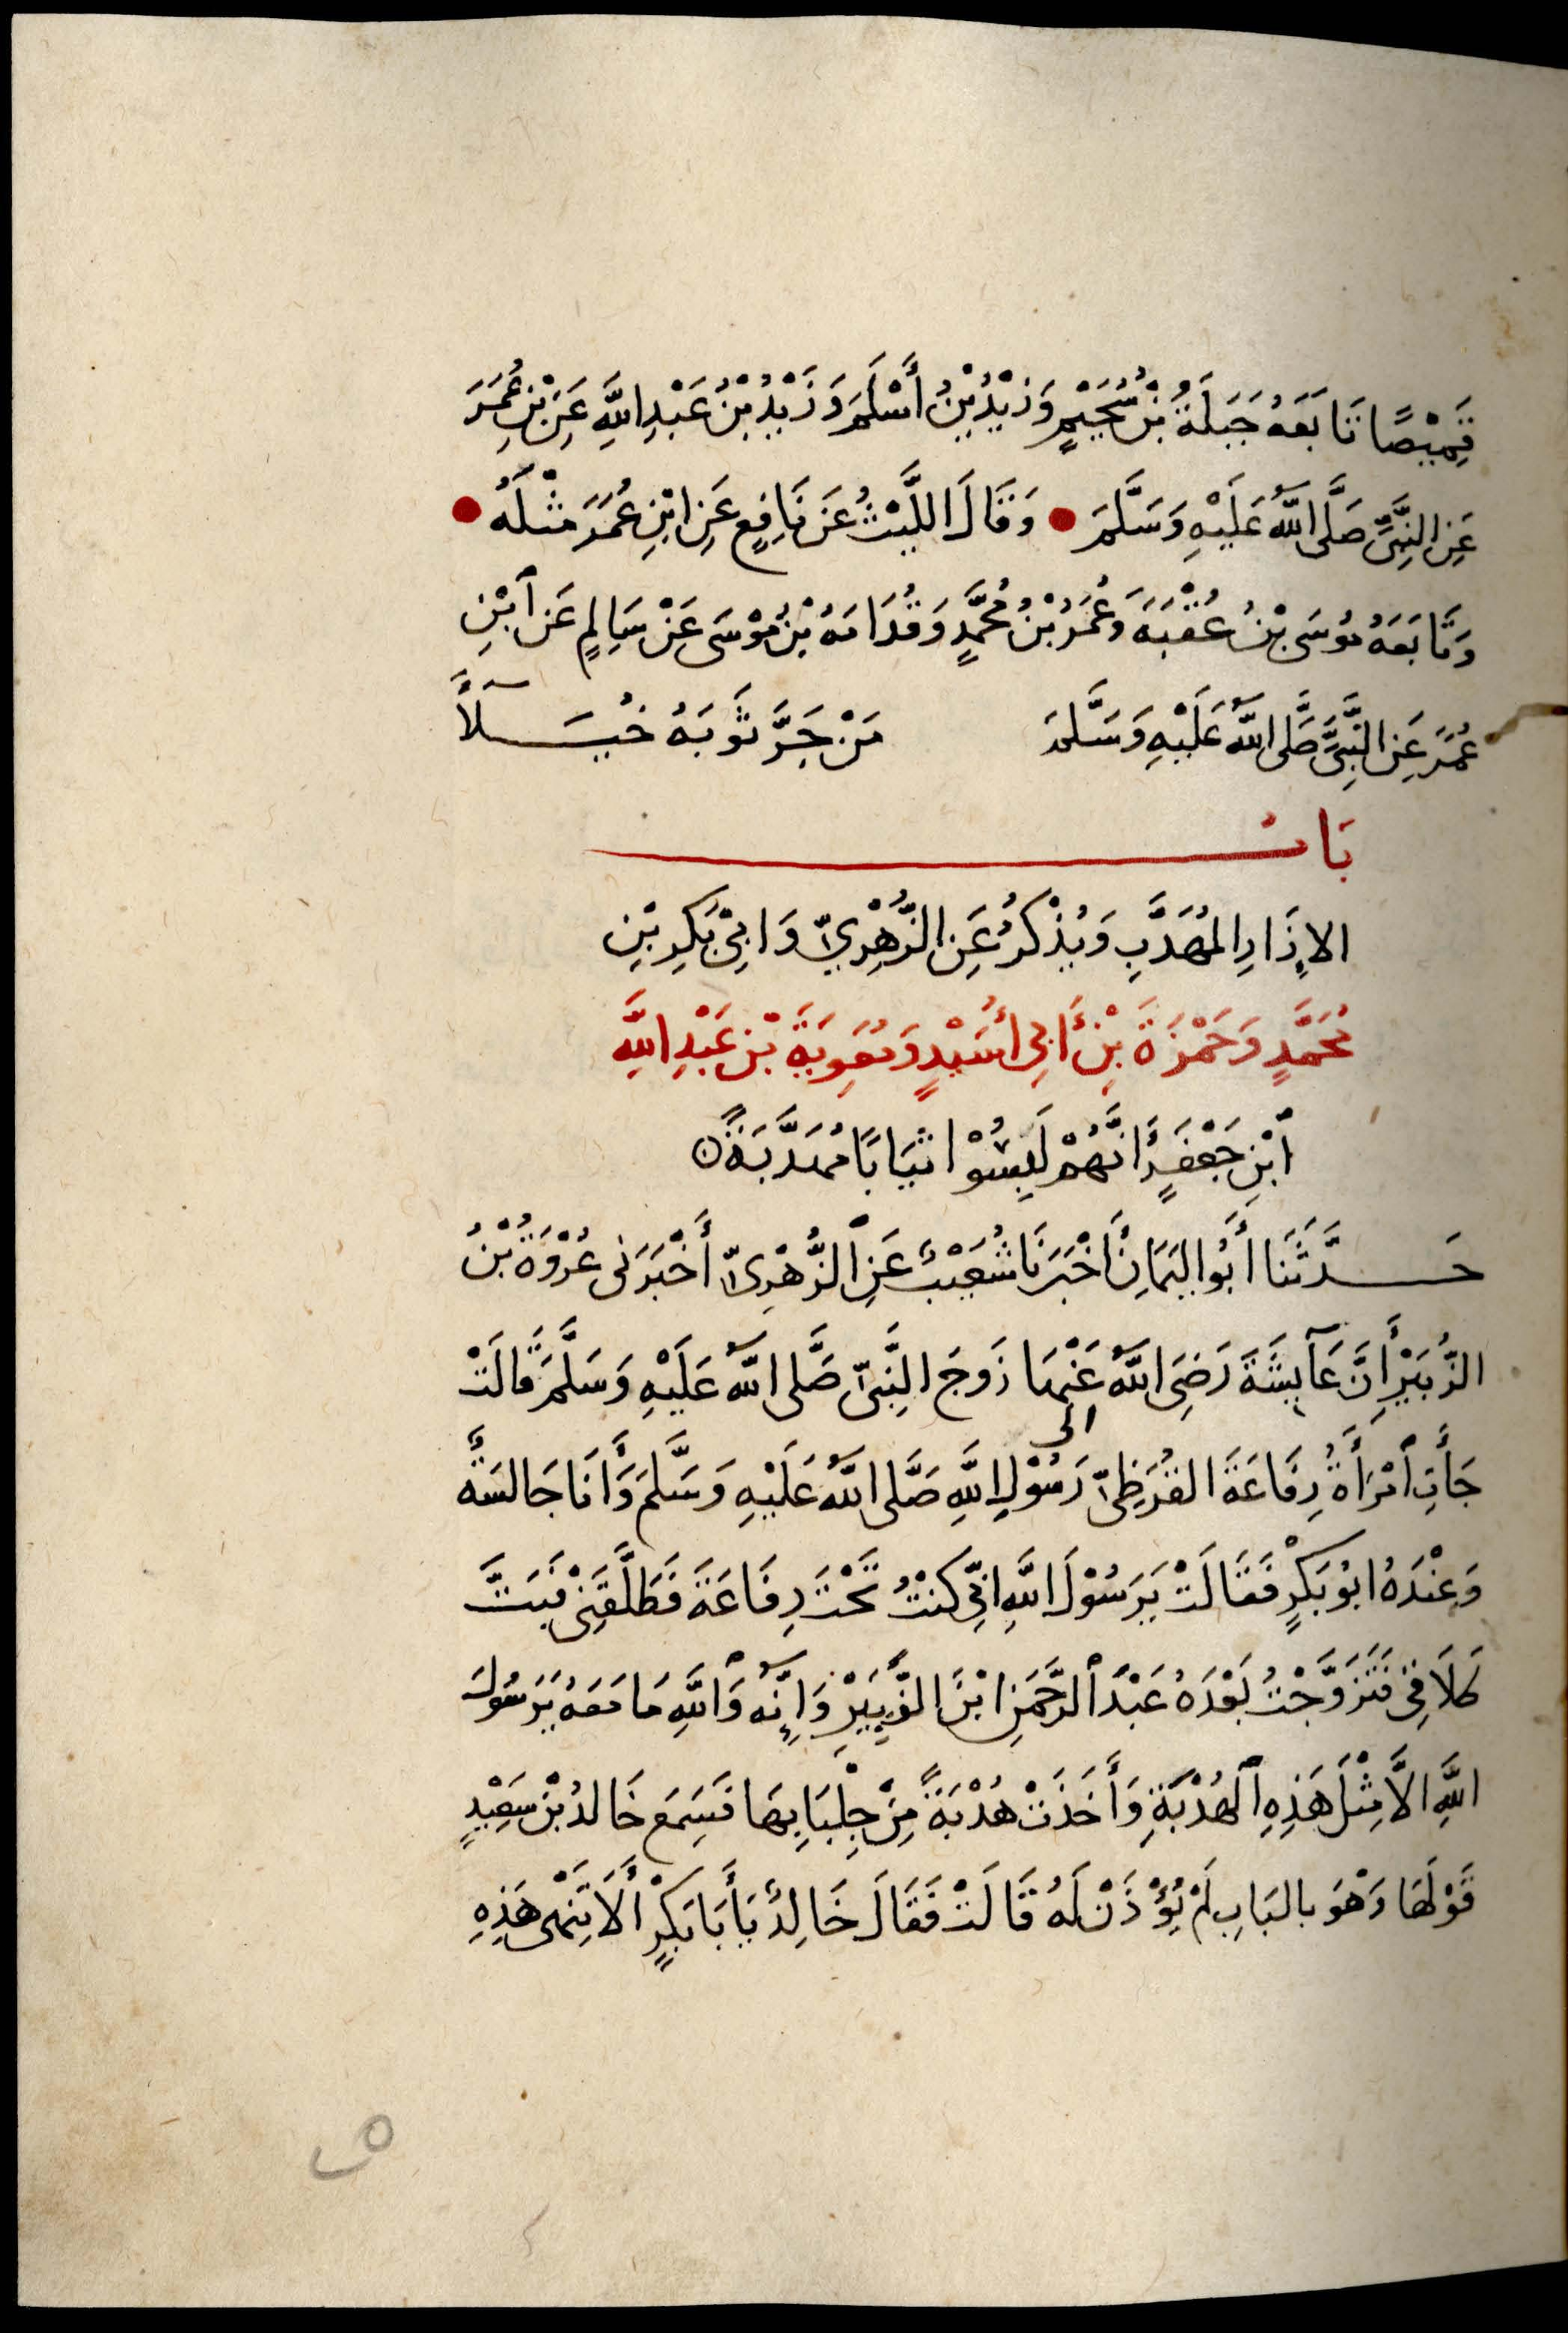 قَمِيْصًا تَابَعَهُ جَبَلَةُ بْنُ سُحَيْمٍ وَزَيْدُ بْنُ أَسْلَمَ وَزَيْدُ بْنُ عَبْدِ اللَّهِ عَنِ بْنِ عُمَرَ
عَنِ النَّبِيِّ صَلَّى اللَّهُ عَلَيْهِ وَسَلَّمَ ● وَقَالَ اللَّيْثُ عَنْ نَافِعٍ عَنِ ابْنِ عُمَرَ مِثْلَهُ ●
وَتَابَعَهُ مُوسَى بْنُ عُقْبَةَ وَعُمَرُ بْنُ مُحَمَّدٍ وَقُدَامَةُ بْنُ مُوْسَى عَنْ سَالِمٍ عَنِ ٱبْنِ
عُمَرَ عَنِ النَّبِيِّ صَلَّى اللَّهُ عَلَيْهِ وَسَلَّمَ مَنْ جَرَّ ثَوْبَهُ خُيَلَآءً
بَابُ
الإِزَارِ المُهَدَّبِ وَيُذْكَرُ عَنِ الزُّهْرِيِّ وَابِيْ بَكْرِ بْنِ
مُحَمَّدٍ وَحَمْزَةَ بْنِ أَبِي أُسَيْدٍ وَمُعَوِيَةَ بْنِ عَبْدِ اللَّهِ
ٱبْنِ جَعْفَرٍ أَنَّهُمْ لَبِسُوْا ثِيَابًا مُهَدَّبَةً
حَدَّثَنَا أَبُو اليَمَانِ أَخْبَرَنَا شُعَيْبٌ عَنِ ٱلزُّهْرِىِّ أَخْبَرَنِى عُرْوَةُ بْنُ
الزُّبَيْرِ أَنَّ عَآيِشَةَ رَضِىَ اللَّهُ عَنْهَا زَوجَ النَّبِىِّ صَلَّى اللَّهُ عَلَيْهِ وَسَلَّمَ قَالَتْ
جَأَتِ ٱمْرَأَةُ رِفَاعَةَ القُرَظِىِّ الى رَسُوْلِ اللَّهِ صَلَّى اللَّهُ عَلَيْهِ وَسَلَّمَ وَأَنَا جَالسَةٌ
وَعِنْدَهُ ابُو بَكْرٍ فَقَالَتْ يَرَسُوْلَ اللَّهِ انِّى كُنْتُ تَحْتَ رِفَاعَةَ فَطَلَّقَنِيْ فَبَتَّ
طَلَاقِيْ فَتَزَوَّجْتُ بَعْدَهُ عَبْدَ ٱلرَّحْمَنِ ابْنَ الزَّبِيْرِ وَإِنَّهُ وَٱللَّهِ مَا مَعَهُ يَرَسُولَ
اللَّهِ الاَّ مِثْلَ هَذِهِ ٱلهُدْبَةِ وَأَخَذَتْ هُدْبَةً مِنْ جِلْبَابِهَا فَسَمِعَ خَالدُ بْنُ سَعِيْدٍ
قَوْلَهَا وَهْوَ بالبَابِ لَمْ يُؤْذَنْ لَهُ قَالَتْ فَقَالَ خَالِدٌ يَأَبَا بَكْرٍ أَلَا تَنْهَى هَذِهِ